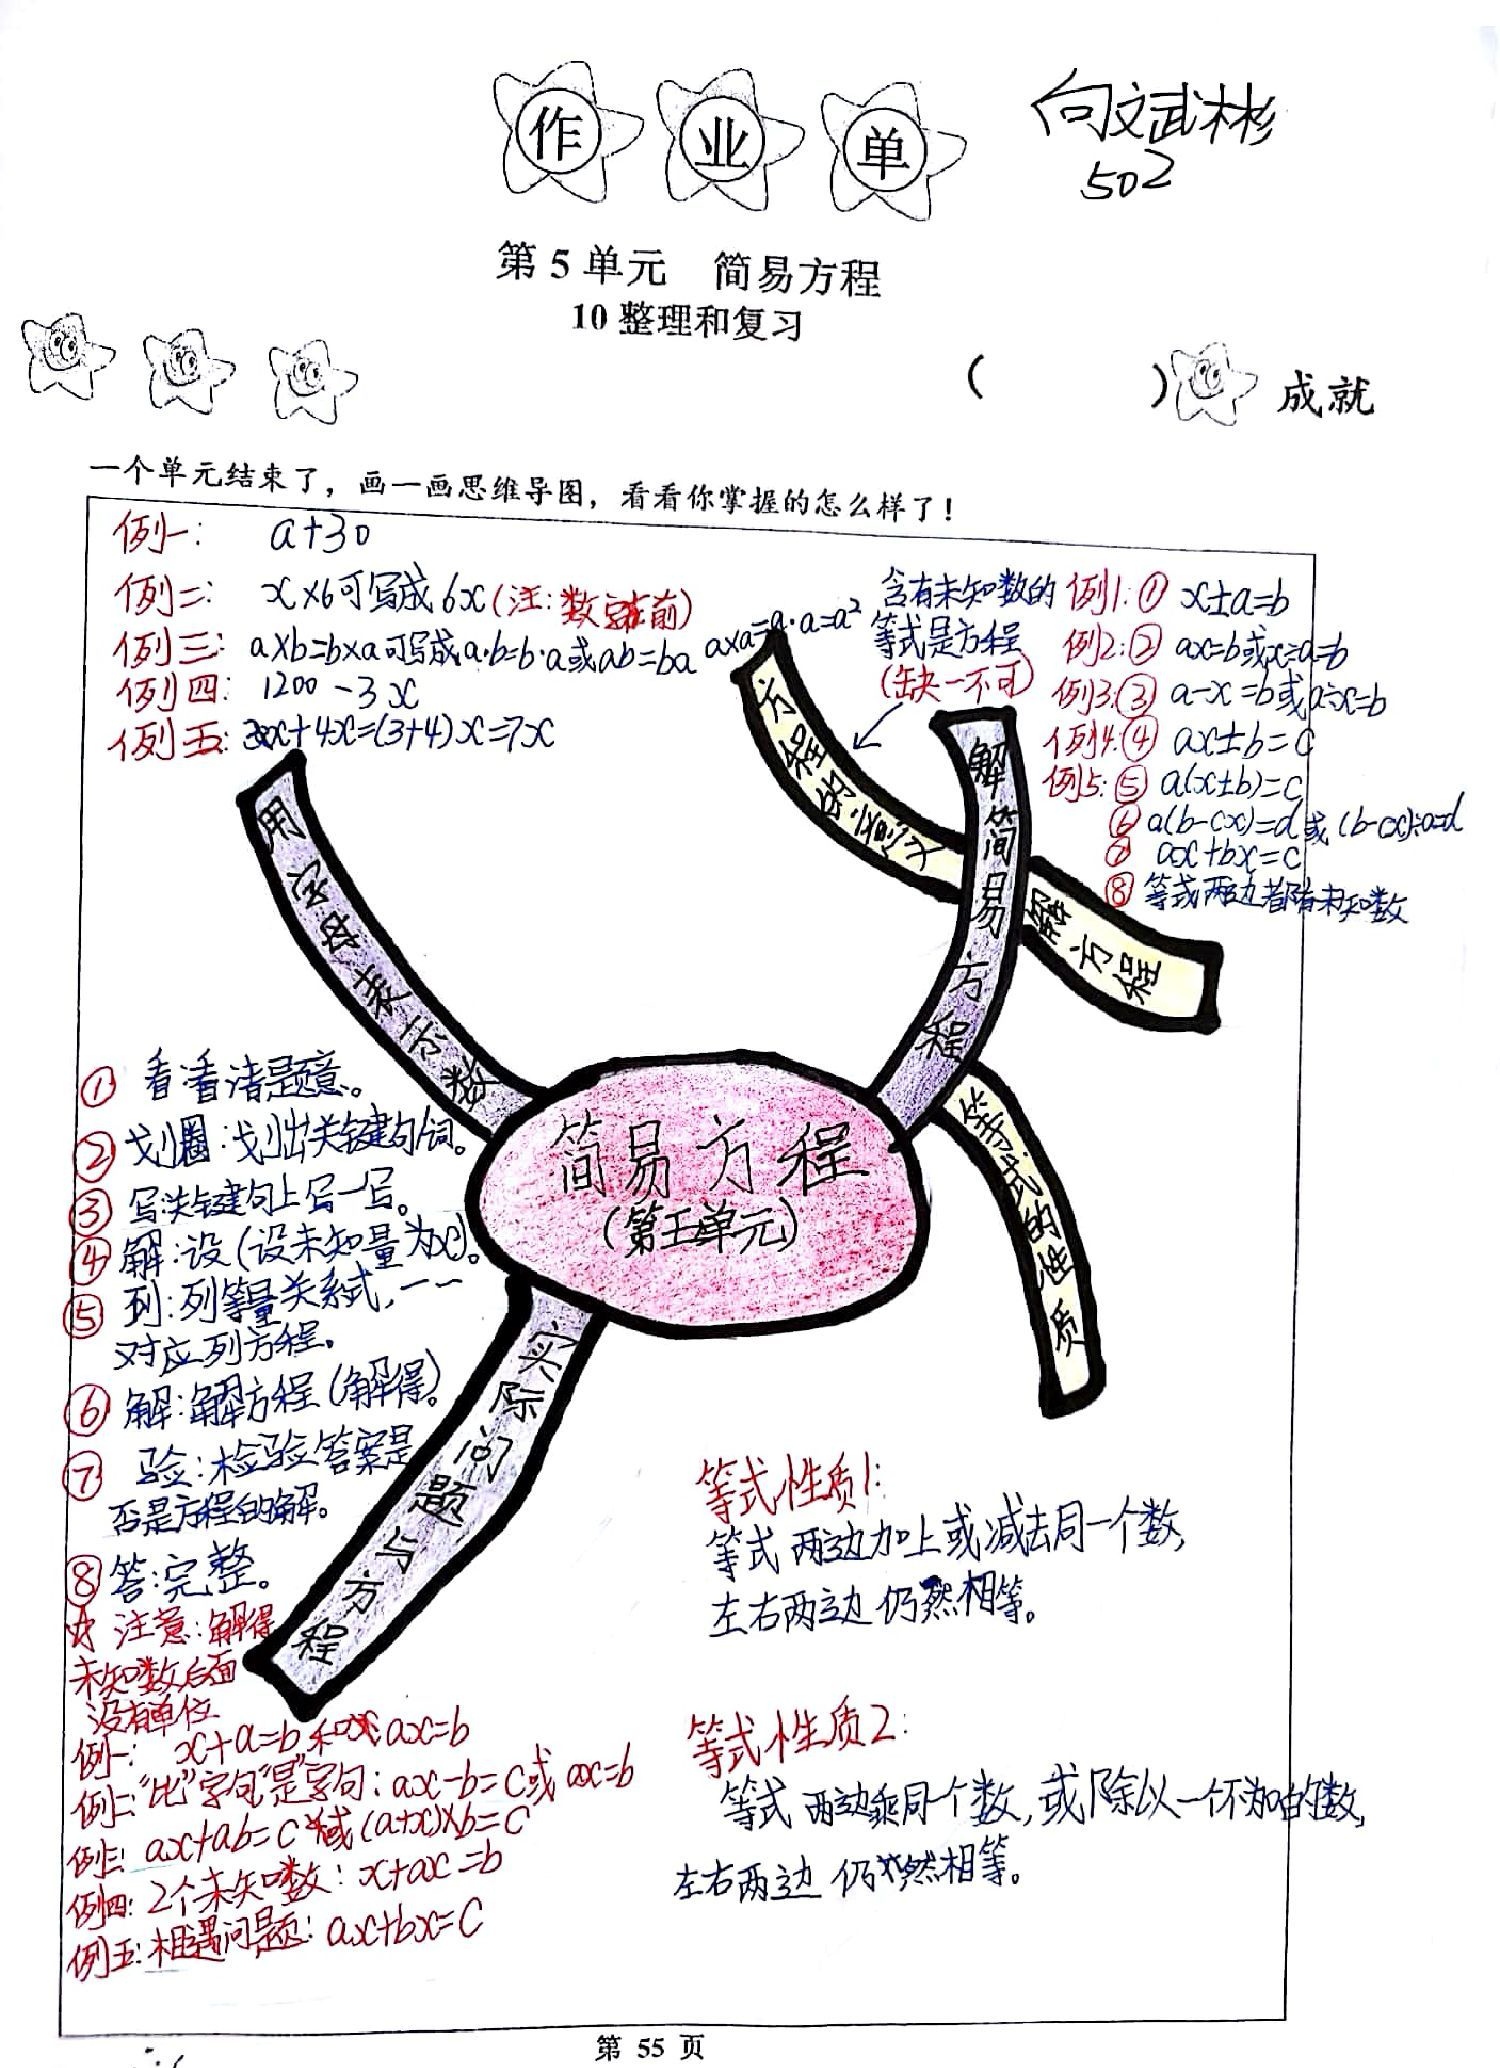 作业单
向文斌彬
502
第5单元 简易方程
10整理和复习
( ) 成就
一个单元结束了，画一画思维导图，看看你掌握的怎么样了！
例一： a+30
例二： x×6可写成6x(注：数字在前)
例三：a×b=b×a可写成a·b=b·a或ab=ba a×a=a·a=a²
例四：1200-3x
例五：3x+4x=(3+4)x=7x
含有未知数的
等式是方程
(缺一不可)
例1：① x±a=b
例2：② ax=b或x÷a=b
例3：③ a-x=b或a÷x=b
例4：④ ax±b=c
例5：⑤ a(x±b)=c
⑥ a(b-cx)=d或(b-cx)÷a=d
⑦ ax+bx=c
⑧ 等式两边都有未知数
用字母表示数
方程的意义
解简易方程
解方程
等式的性质
实际问题与方程
简易方程
(第五单元)
① 看：看清题意。
② 划圈：划出关键句/词。
③ 写：关键句上写一写。
④ 解：设(设未知量为x)。
⑤ 列：列等量关系式，一一
对应列方程。
⑥ 解：解方程(解得)。
⑦ 验：检验答案是
否是方程的解。
⑧ 答：完整。
☆ 注意：解得
未知数后面
没有单位
例一： x+a=b和ax=b
例二："比"字句"是"字句：ax-b=c或ax=b
例三：ax+ab=c或(a+x)×b=c
例四：2个未知数：x+ax=b
例五：相遇问题：ax+bx=c
等式性质1：
等式两边加上或减去同一个数，
左右两边仍然相等。
等式性质2：
等式两边乘同一个数，或除以一个不为0的数，
左右两边仍然相等。
第 55 页